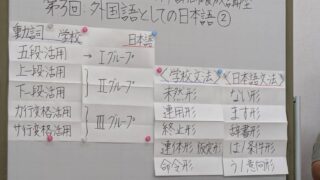 第3回.外国語としての日本語②
動詞 学校 日本語
五段活用 → Ⅰグループ
上一段活用
下一段活用
} Ⅱグループ
カ行変格活用
サ行変格活用
} Ⅲグループ
〈学校文法〉〈日本語文法〉
未然形 ない形
連用形 ます形
終止形 辞書形
連体形 仮定形 ば/条件形
命令形 う/意向形